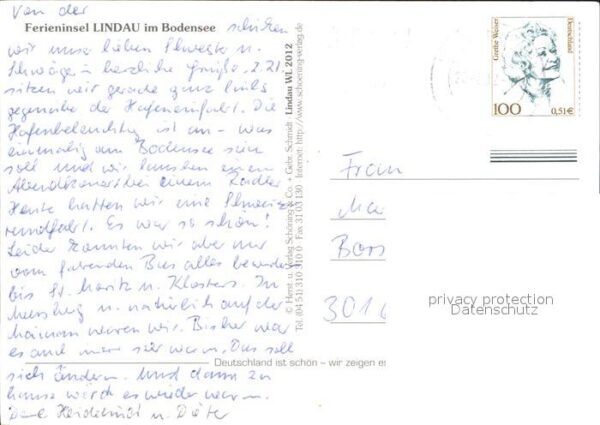 Von der
Ferieninsel LINDAU im Bodensee schicken
wir unse lieben Schweste u.
Schwäge herzliche Grüße. Z. Zt.
sitzen wir gerade ganz links
gegenüber der Hafeneinfahrt. Die
Hafenbeleuchtg ist an – was
einmalig am Bodensee sein
soll und wir lauschen einem
Abendkonzert bei einem Radler
Heute hatten wir eine Schweiz
rundfahrt. Es war so schön!
Leider konnten wir aber nur
vom fahrenden Bus alles bewundern
bis St. Moritz u. Klosters. In
Meersburg u. natürlich auf der
Mainau waren wir. Bisher war
es auch immer sehr warm. Das soll
sich ändern. Und dann zu
hause wird es wieder warm.
Heidelinde u. Dieter
© Herst. u. Verlag Schöning & Co. + Gebr. Schmidt Lindau WL 2012
Tel. (04 51) 310 310 0 Fax 31 03 130 Internet: http://www.schoening-verlag.de
Deutschland ist schön – wir zeigen es
Grethe Weiser
Deutschland
100
0,51 €
Frau
Ma
Boss
3016
privacy protection
Datenschutz